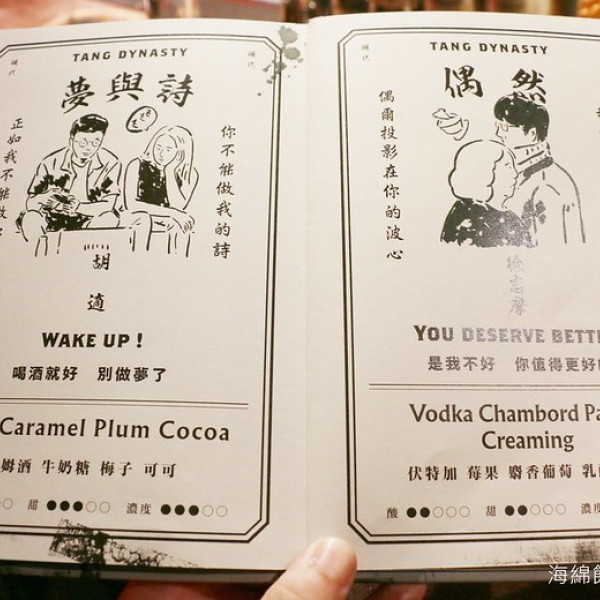 現代
TANG DYNASTY
夢與詩
你不能做我的詩
正如我不能做
胡適
WAKE UP!
喝酒就好 別做夢了
Caramel Plum Cocoa
姆酒 牛奶糖 梅子 可可
甜 ●●●○○ 濃度 ●●●○○
現代
TANG DYNASTY
偶然
偶爾投影在你的波心
徐志摩
YOU DESERVE BETTE
是我不好 你值得更好
Vodka Chambord Pa
Creaming
伏特加 莓果 麝香葡萄 乳
酸 ●●○○○ 甜 ●●○○○ 濃
海綿